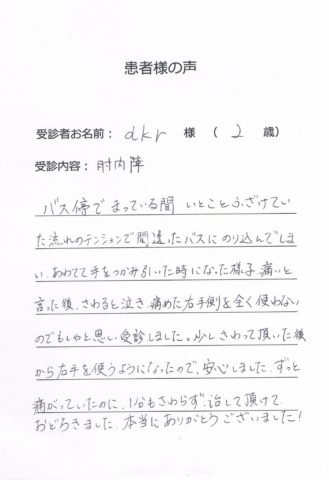 患者様の声
受診者お名前： dkr 様 （ 2 歳）
受診内容：肘内障
バス停でまっている間 いとことふざけてい
た流れのテンションで間違ったバスにのり込んでしま
い、あわてて手をつかみ引いた時になった様子、痛いと
言った後、さわると泣き、痛めた右手側を全く使わない
のでもしやと思い受診しました。少しさわって頂いた後
から右手を使うようになったので、安心しました。ずっと
痛がっていたのに、1分もさわらず、治して頂けて
おどろきました。本当にありがとうございました！